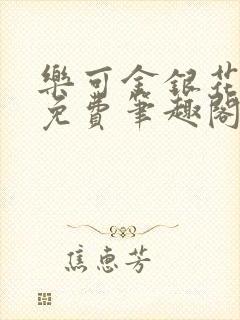 樂可金銀花
免費筆趣閣
焦惠芳